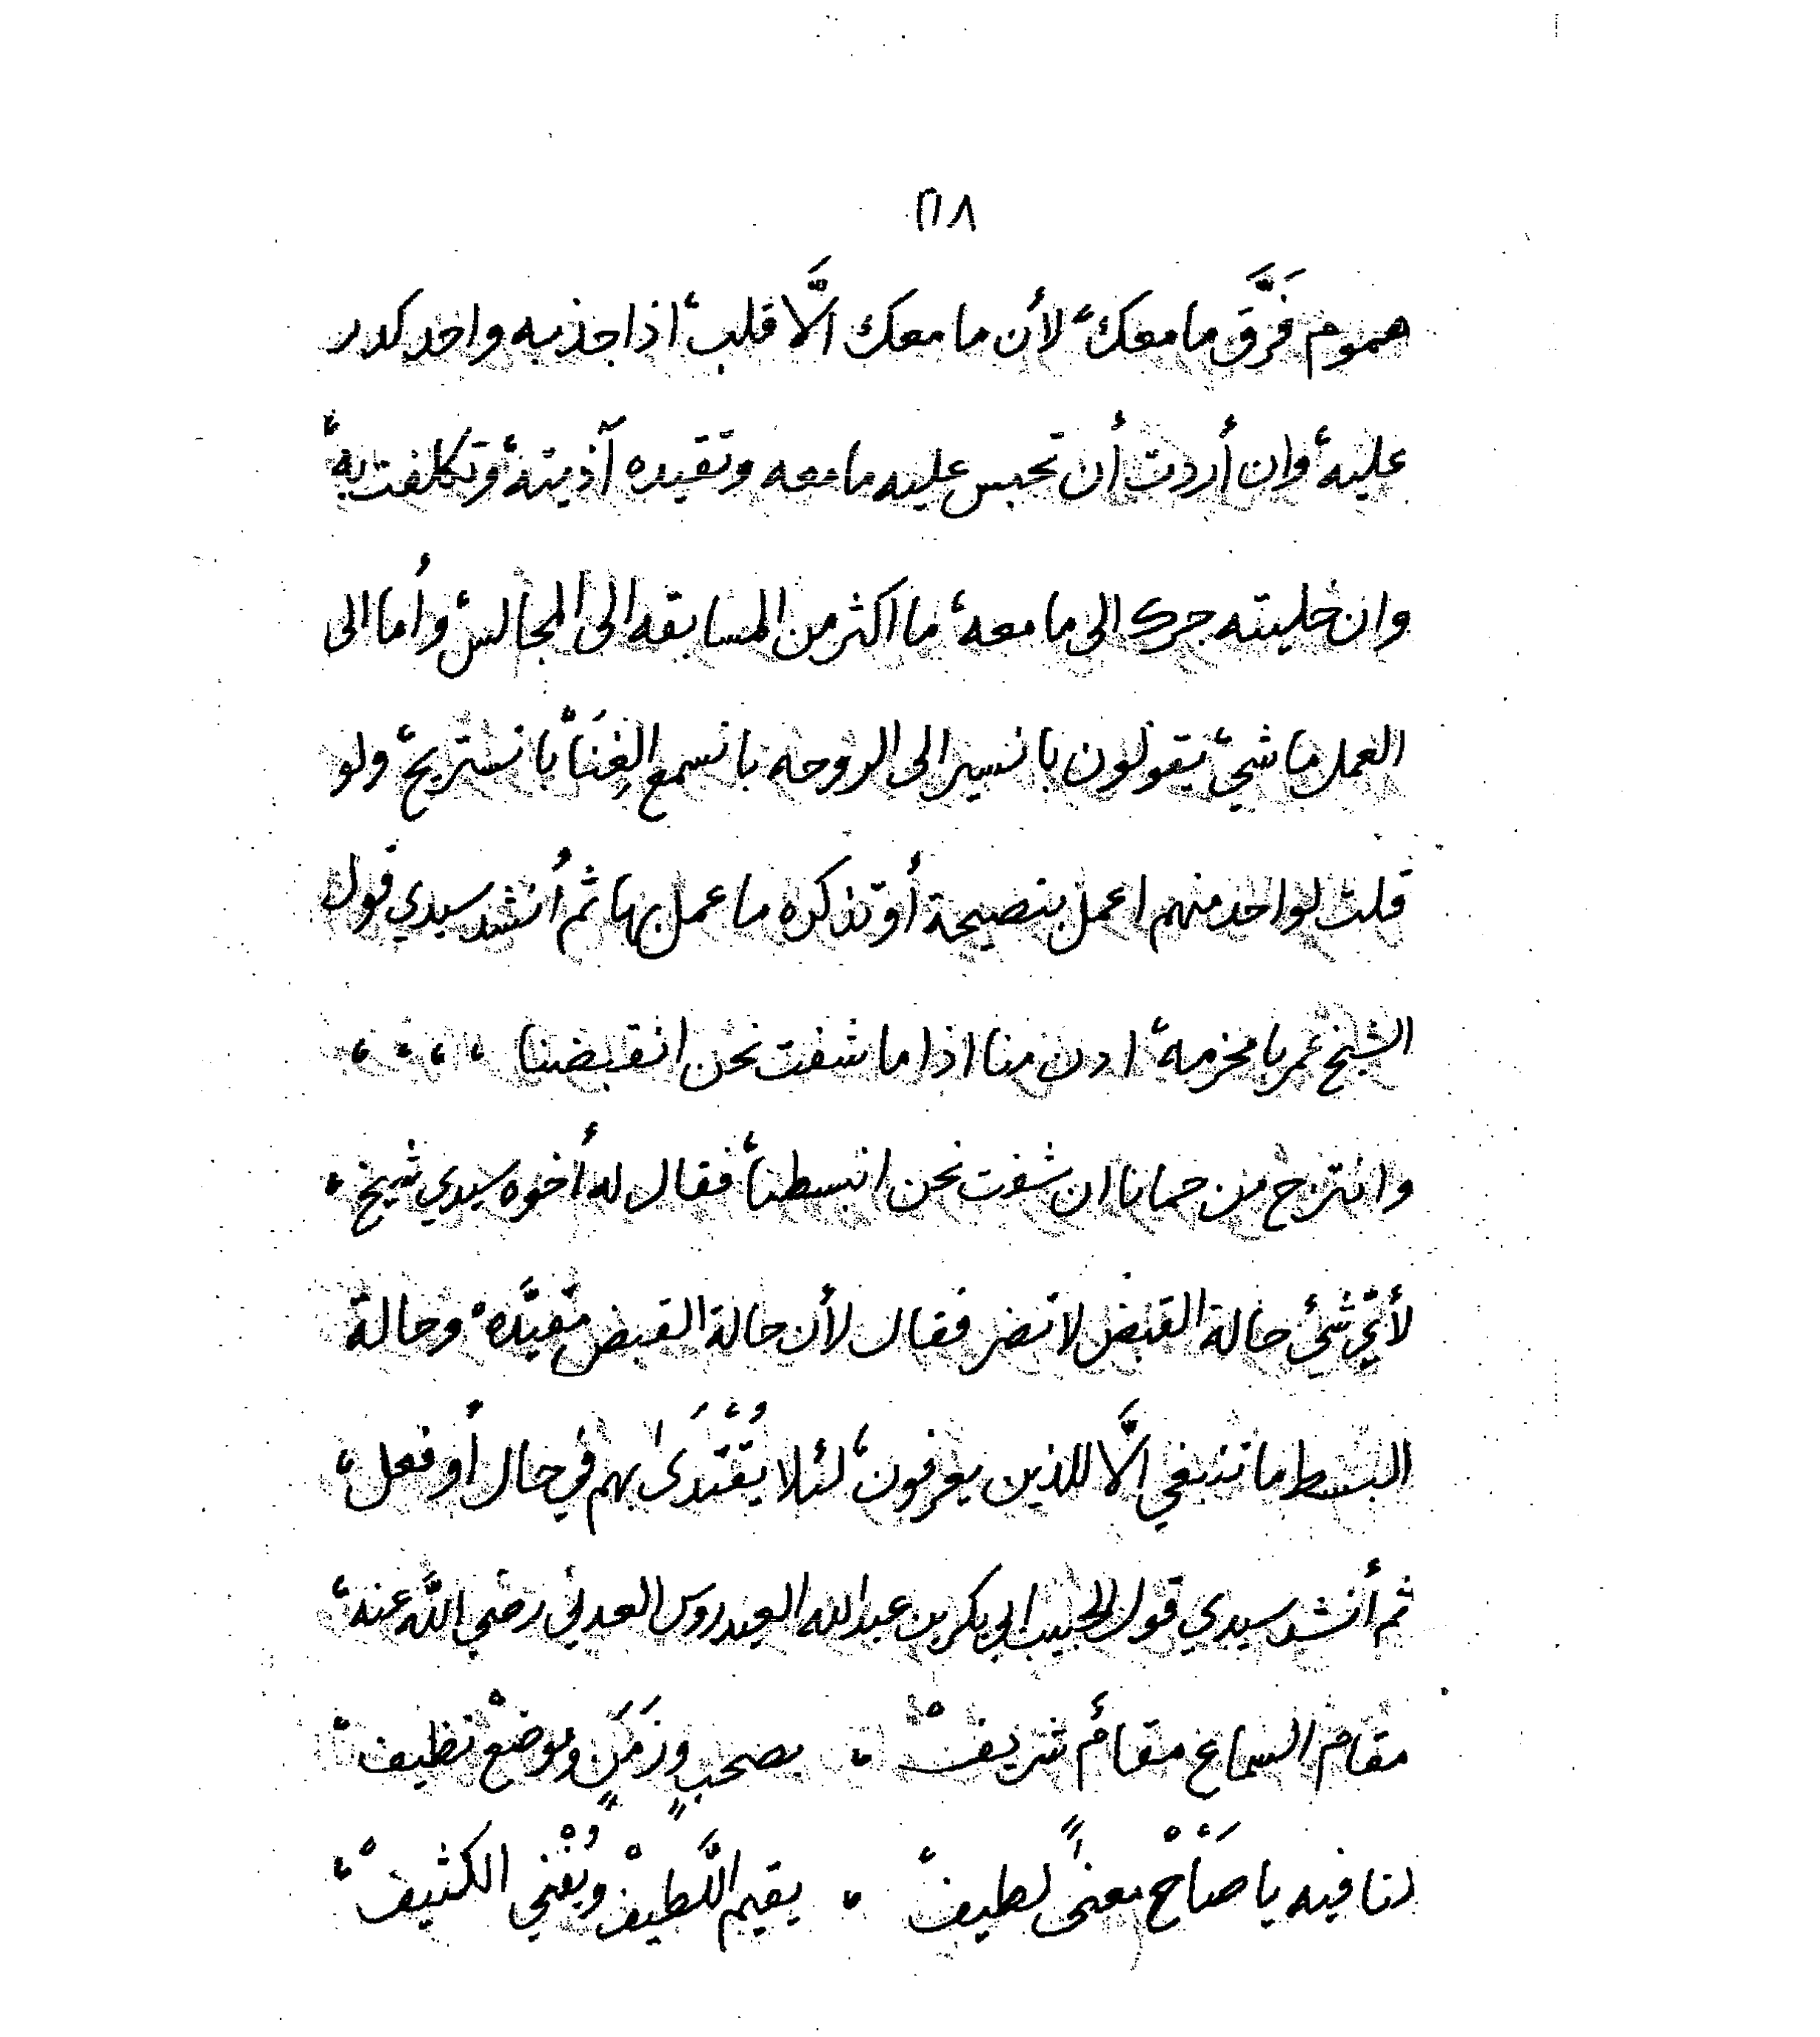 ٢١٨
هموم فَرَّق ما معك، لأن ما معك الَّا قلب، اذا جذبه واحد كدر
عليه، وان أردت أن تحبس عليه ما معه وتقيده آذيته، وتكلفت به،
وان خليته جرك الى ما معه، ما اكثر من المسابقه الى المجالس، وأما الى
العمل ما شي، يقولون با نسير الى الروحه با نسمع الغِنَا، با نستريح، ولو
قلت لواحد منهم اعمل بنصيحة أو تذكره ما عمل بها ثم أنشد سيدي قول
الشيخ عمر بامخرمه، ادن منا اذا ما شفت نحن انقبضنا ، ، ، ،
وانتزح من حمانا ان شفت نحن انبسطنا، فقال له أخوه سيدي شيخ،
لأيّ شئ حالة القبض لا تضر فقال لأن حالة القبض مقيَّده، وحالة
البسط ما تنبغي الَّا للذين يعرفون، لئلا يُقْتَدَى بهم في حال أو فعل،
ثم أنشد سيدي قول الحبيب ابي بكر بن عبدالله العيدروس العدني رضي اللّه عنه،
مقام السماع مقامٌ شريفْ ، بصحبٍ وزَمَنٍ وموضعْ نظيف،
لنا فيه يا صَاحْ معنىً لطيفْ ، يقيم اللَّطيفْ ويُفْني الكثيفْ،